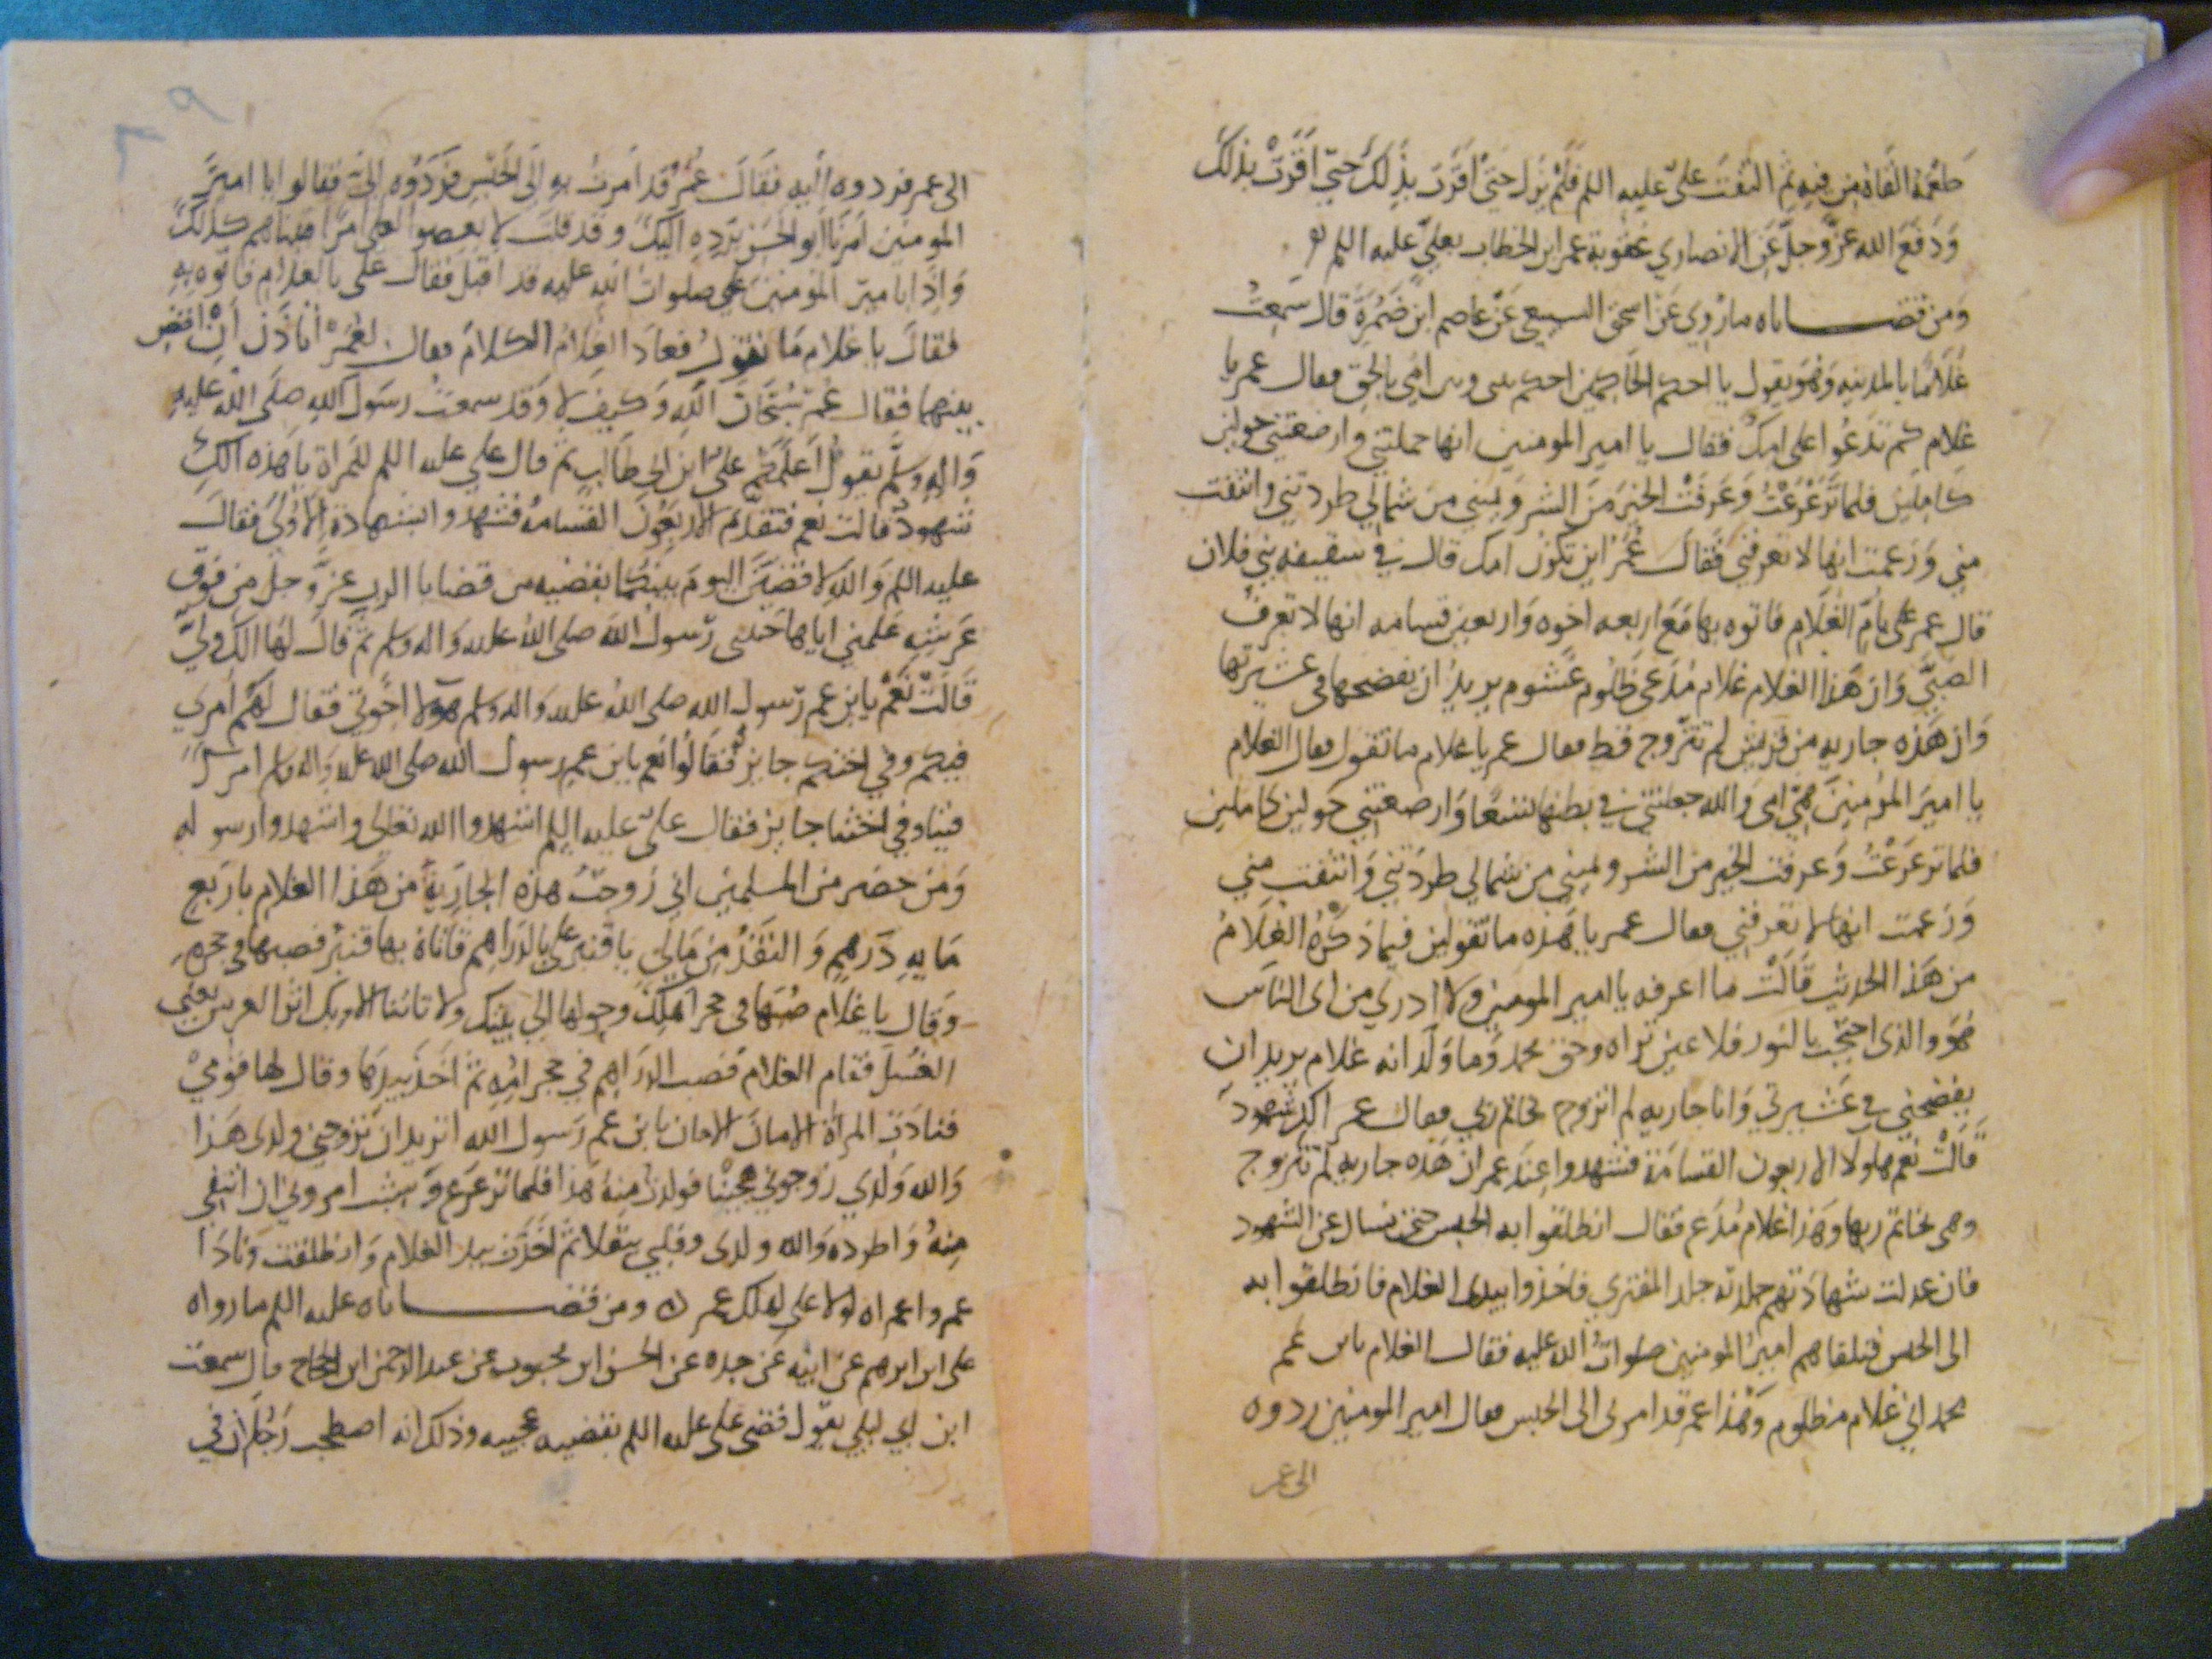 طعمه القاه من فيه ثم التفت علي عليه السلم فلم يزل حتي اقرت بذلك حتي اقرت بذلك
ودفع الله عز وجل عن الانصاري عقوبة عمر ابن الخطاب بعلي عليه السلم
ومن قضاياه ما روي عن اسحق السبيعي عن عاصم ابن ضمرة قال سمعت
غلاما بالمدينه وهو يقول يا احكم الحاكمين احكم بيني وبين امي بالحق فقال عمر يا
غلام كم تدعوا على امك فقال يا امير المومنين انها حملتني وارضعتني حولين
كاملين فلما ترعرعت وعرفت الخير من الشر ويميني من شمالي طردتني وانتفت
مني وزعمت انها لا تعرفني فقال عمر اين تكون امك قال في سقيفه بني فلان
قال عمر علي بام الغلام فاتوه بها مع اربعه اخوه واربعين قسامه انها لا تعرف
الصبي وان هذا الغلام غلام مدعي ظلوم غشوم يريد ان يفضحها في عشيرتها
وان هذه جاريه من قريش لم تتزوج قط فقال عمر يا غلام ما تقول فقال الغلام
يا امير المومنين هي امي والله حملتني في بطنها تسعا وارضعتني حولين كاملين
فلما ترعرعت وعرفت الخير من الشر ويميني من شمالي طردتني وانتفت مني
وزعمت انها لا تعرفني فقال عمر يا هذه ما تقولين فيما ذكره الغلام
من هذا الحديث قالت ما اعرفه يا امير المومنين ولا ادري من اي الناس
هو والذي احتجب بالنور فلا عين تراه وحق محمد وما ولد انه غلام يريد ان
يفضحني في عشيرتي وانا جاريه لم اتزوج بخاتم ربي فقال عمر الك شهود
قالت نعم هاولا الاربعون القسامة فشهدوا عند عمر ان هذه جاريه لم تتزوج
وهي بخاتم ربها وهذا غلام مدع فقال انطلقوا به الحبس حتي نسال عن الشهود
فان عدلت شهادتهم جلدته جلد المفتري فاخذوا بيد الغلام فانطلقوا به
الى الحبس فتلقاهم امير المومنين صلوات الله عليه فقال الغلام يابن عم
محمد اني غلام مظلوم وهذا عمر قد امر بي الى الحبس فقال امير المومنين ردوه
الى عمر
الى عمر فردوه اليه فقال عمر قد امرت به الى الحبس فرددوه الي فقالوا يا امير
المومنين امرنا ابو الحسن برده اليك وقد قلت لا تعصوا لعلي امرا فبيناهم كذلك
واذا بامير المومنين علي صلوات الله عليه قد اقبل فقال علي بالغلام فاتوه به
فقال يا غلام ما تقول فعاد الغلام الكلام فقال لعمر اتاذن ان اقضي
بينهما فقال عمر سبحان الله وكيف لا وقد سمعت رسول الله صلى الله عليه
واله وسلم يقول اعلمكم علي ابن ابي طالب ثم قال علي عليه السلم للمراة يا هذه الك
شهود قالت نعم فتقدم الاربعون القسامه فشهدوا بالشهادة الاولى فقال
عليه السلم والله لاقضين اليوم بينكما بقضيه من قضايا الرب عز وجل من فوق
عرشه علمني اياها حبيبي رسول الله صلى الله عليه واله وسلم ثم قال لها الك ولي
قالت نعم يابن عم رسول الله صلى الله عليه واله وسلم هولا اخوتي فقال لهم امري
فيكم وفي اختكم جايز فقالوا نعم يابن عم رسول الله صلى الله عليه واله وسلم امرك
فينا وفي اختنا جايز فقال علي عليه السلم اشهدوا الله تعالى واشهدوا رسوله
ومن حضر من المسلمين اني زوجت هذه الجارية من هذا الغلام باربع
مايه درهم والنقد من مالي يا قنبر علي بالدراهم فاتاه بها قنبر فصبها في حجره
وقال يا غلام صبها في حجر اهلك وحولها الى بيتك ولا تاتنا الا وبك اثر العرس يعني
الغسل فقام الغلام فصب الدراهم في حجر امه ثم اخذ بيدها وقال لها قومي
فنادت المراة الامان الامان يابن عم رسول الله اتريد ان تزوجني ولدي هذا
والله ولدي زوجوني هجينا فولدت منه هذا فلما ترعرع وشب امروني ان انتفي
منه واطرده والله ولدي وقلبي يتقلا ثم اخذت بيد الغلام وانطلقت ونادا
عمر واعمراه لولا علي لهلك عمر ومن قضاياه عليه السلم ما رواه
علي ابن ابرهيم عن ابيه عن جده عن الحسن ابن محبوب عن عبد الرحمن ابن الحجاج قال سمعت
ابن ابي ليلي يقول قضى علي عليه السلم بقضيه عجيبه وذلك انه اصطحب رجلان في